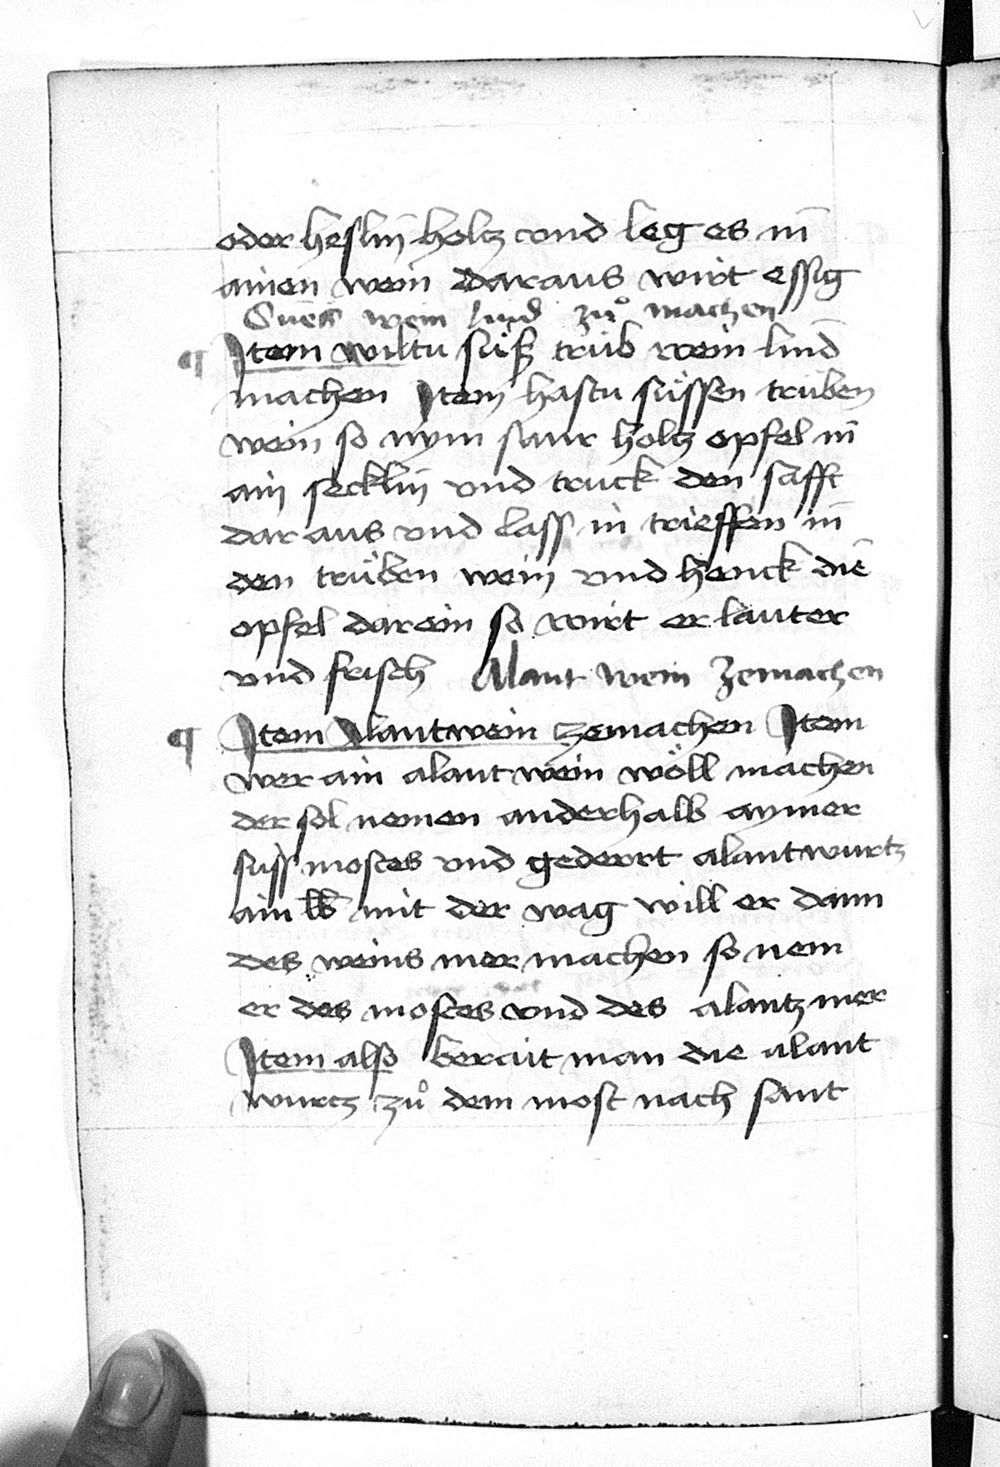 oder heslin holtz vnd leg es in
ainen wein daraus wirt essig
Suess wein lind zuͦ machen
¶ Item wiltu süß trüb wein lind
machen Item hastu süssen trüben
wein so nym saur holtz opfel in
ain secklin vnd truck den safft
dar aus vnd lass in trieffen in
den trüben wein vnd henck die
opfel darein so wirt er lauter
vnd frisch Alant wein zemachen
¶ Item Alantwein zemachen Item
wer ain alant wein wöll machen
der sol nemen anderhalb aymer
süss mostes vnd gederrt alantwurtz
ain lb mit der wag will er dann
des weins mer machen so nem
er des mostes vnd des alantz mer
Item also berait man die alant
wurtz zuͦ dem most nach sant